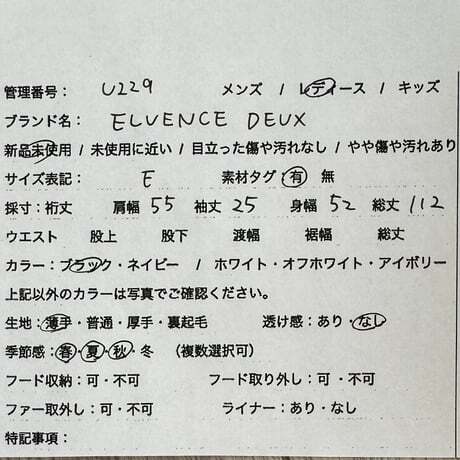 管理番号： U229 メンズ / レディース / キッズ
ブランド名： ELVENCE DEUX
新品未使用 / 未使用に近い / 目立った傷や汚れなし / やや傷や汚れあり
サイズ表記： E 素材タグ：有 無
採寸：裄丈 肩幅 55 袖丈 25 身幅 52 総丈 112
ウエスト 股上 股下 渡幅 裾幅 総丈
カラー：ブラック・ネイビー / ホワイト・オフホワイト・アイボリー
上記以外のカラーは写真でご確認ください。
生地：薄手・普通・厚手・裏起毛 透け感：あり・なし
季節感：春・夏・秋・冬 （複数選択可）
フード収納：可・不可 フード取り外し：可 ・不可
ファー取外し：可・不可 ライナー：あり・なし
特記事項：